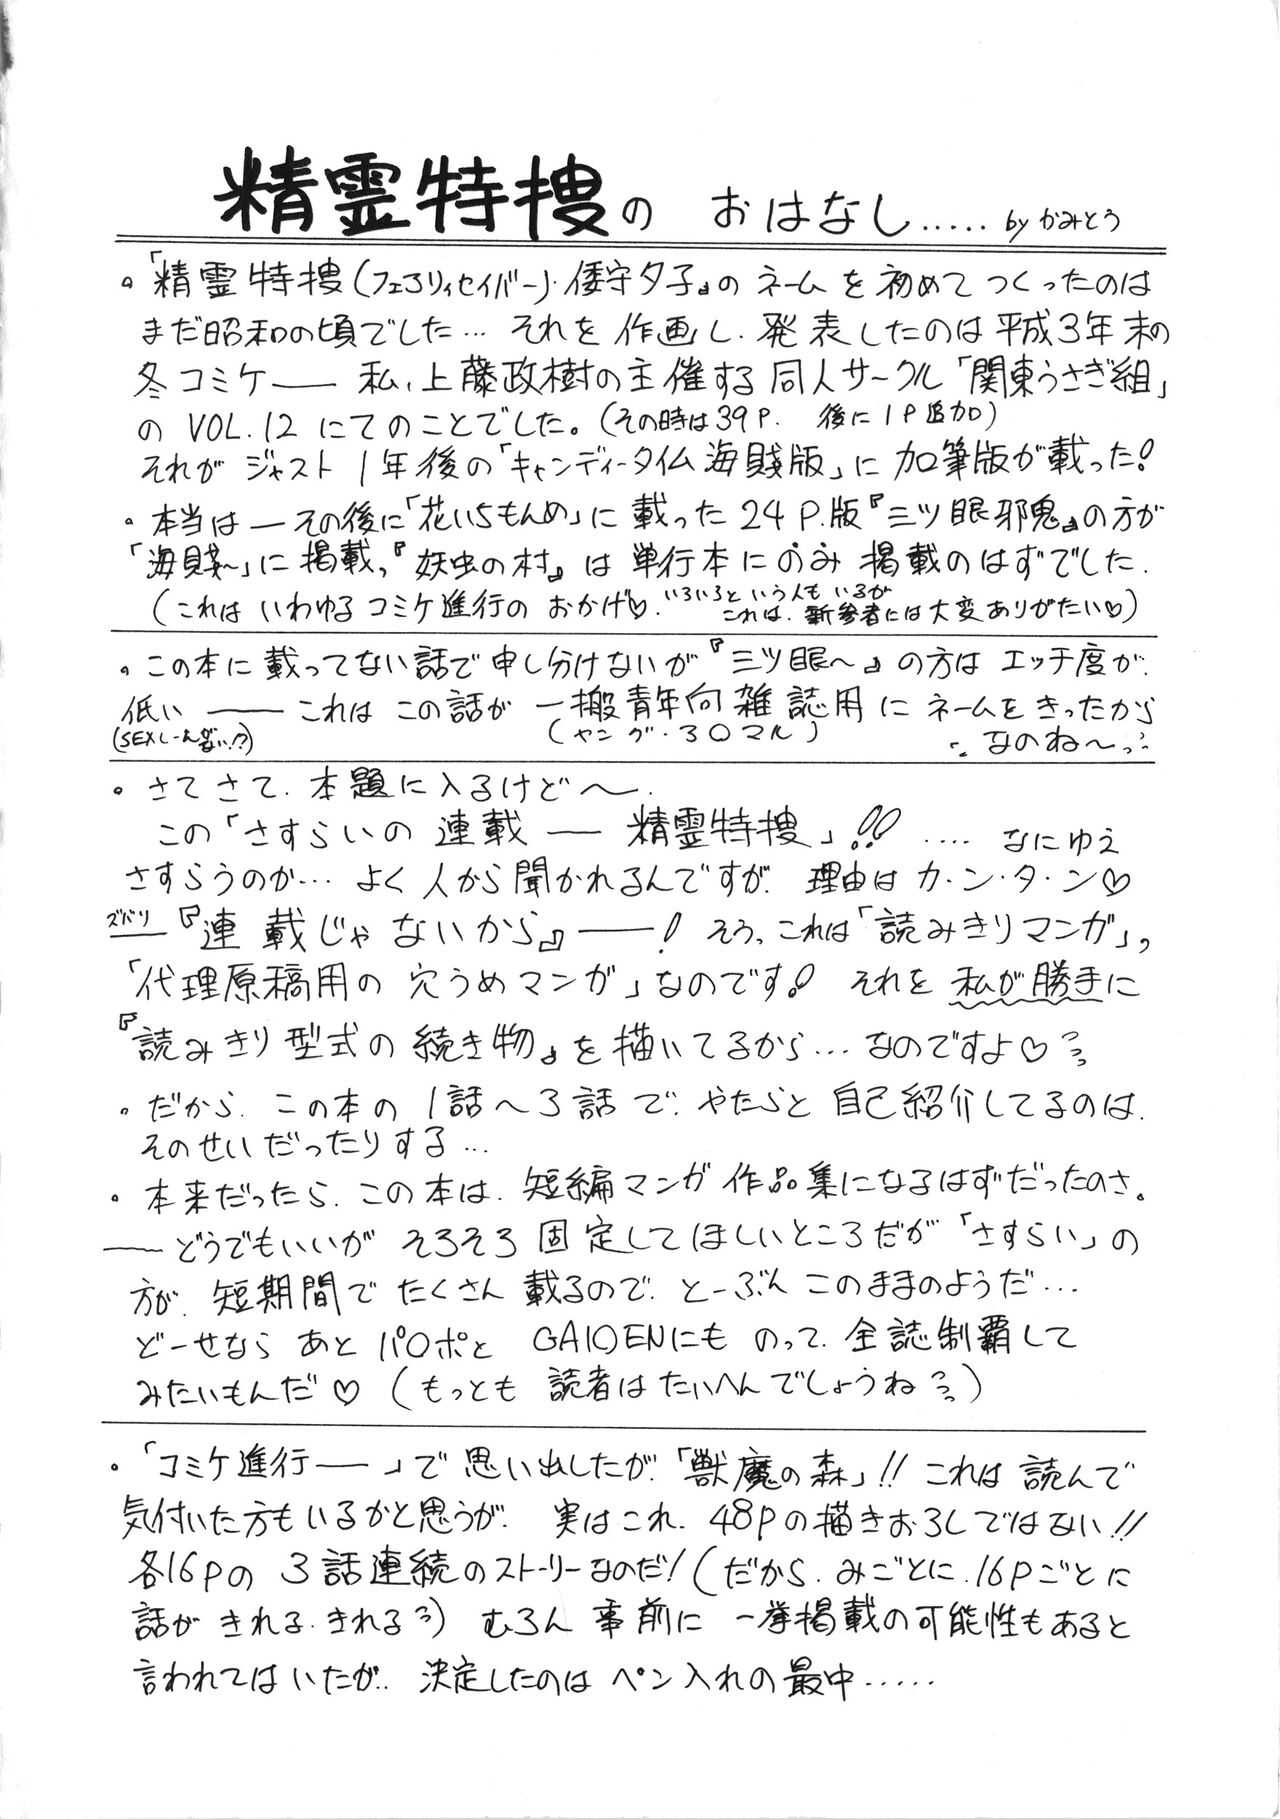 精霊特捜の おはなし..... by かみとう
。「精霊特捜(フェアリィセイバー)・倭守夕子』の ネーム を 初めて つくったのは
まだ昭和の頃でした… それを 作画し、発表したのは平成3年 末の
冬コミケ―― 私、上藤政樹の主催する 同人サークル「関東うさぎ組」
の VOL.12 にてのことでした。(その時は39P. 後に 1P追加)
それが ジャスト 1年後の「キャンディータイム海賊版」に 加筆版が載った!
・本当は―その後に「花いちもんめ」に 載った 24P.版『三ツ眼邪鬼』の方が
「海賊〜」に 掲載、『妖虫の村』は 単行本にのみ 掲載のはずでした.
(これは いわゆる コミケ進行の おかげ♡. いろいろと いう人も いるが
これは、新参者には大変ありがたい♡)
・この本に 載ってない話で 申し分けないが『三ツ眼〜』の方は エッチ度が.
低い ―― これは この話が 一般青年向雑誌用に ネームをきったから
(SEXしーんがない!?) (ヤング・30マル) なのね〜
・さて さて、本題に入るけど〜.
この「さすらいの 連載 ―― 精霊特捜」!! .... なにゆえ
さすらうのか… よく 人から聞かれるんですが、理由はカ・ン・タ・ン♡
ズバリ『連載じゃないから』――! そう、これは「読みきりマンガ」、
「代理原稿用の 穴うめマンガ」なのです! それを 私が勝手に
『読みきり型式の続き物』を描いてるから… なのですよ♡
・だから、この本の 1話〜3話で、やたらと 自己紹介してるのは、
そのせいだったりする…
・本来だったら、この本は、短編マンガ 作品集になるはずだったのさ。
――どうでもいいが そろそろ 固定してほしいところだが「さすらい」の
方が、短期間で たくさん 載るので、とーぶん このままのようだ…
どーせなら あと パロポと GAIDENにも のって、全誌制覇して
みたいもんだ♡ (もっとも 読者はたいへんでしょうね)
・「コミケ進行――」で 思い出したが、「獣魔の森」!! これは 読んで
気付いた方もいるかと思うが、実はこれ、48Pの描きおろしではない!!
各16Pの 3話連続のストーリーなのだ!(だから、みごとに、16Pごとに
話が きれる、きれる) むろん 事前に 一挙掲載の可能性もあると
言われてはいたが.. 決定したのは ペン入れの最中.....